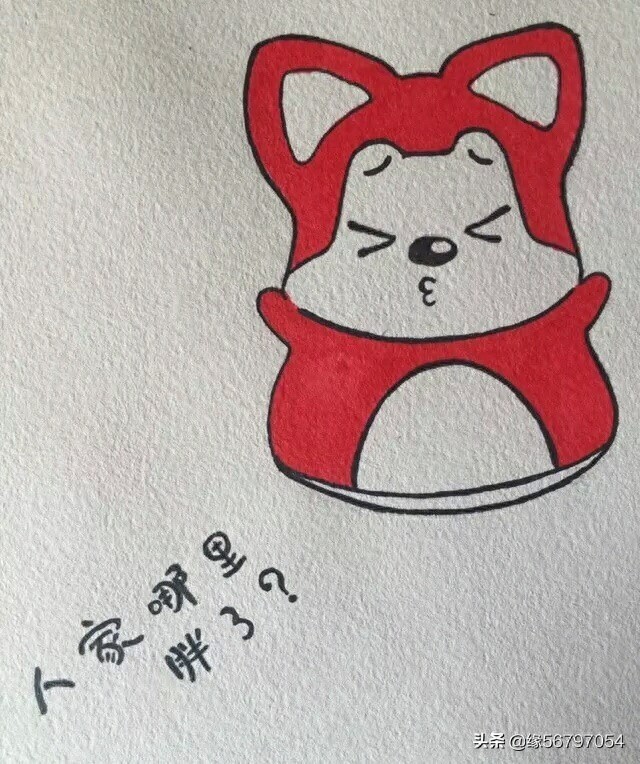 人家哪里
胖了?
头条 @缘56797054